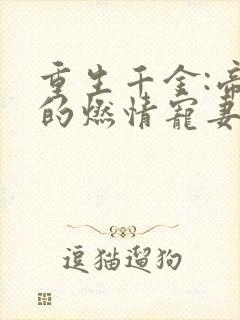 重生千金:帝
的燃情宠妻
逗猫遛狗